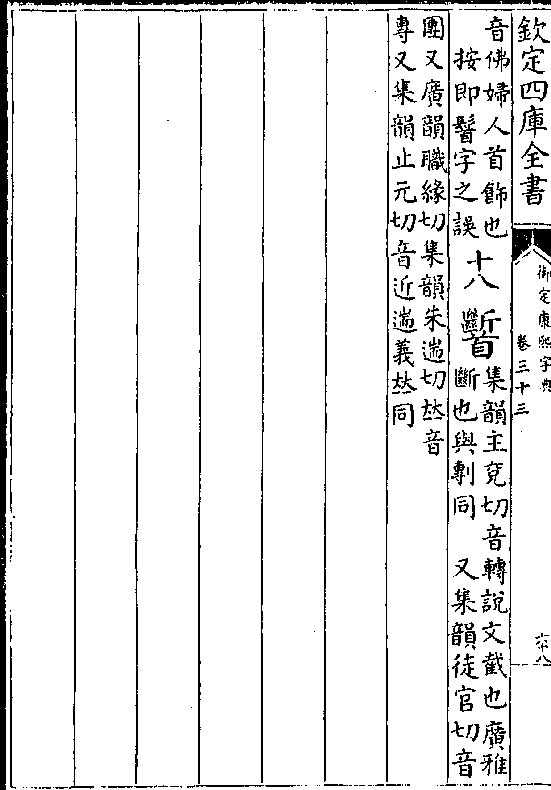 欽定四庫全書
御定康熙字典
卷三十三
六十八
音佛婦人首飾也
按即髻字之誤
十八
集韻主兗切音轉說文截也廣雅
斷也與剸同　又集韻徒官切音
團又廣韻職緣切集韻朱遄切𠀤音
專又集韻止元切音近遄義𠀤同